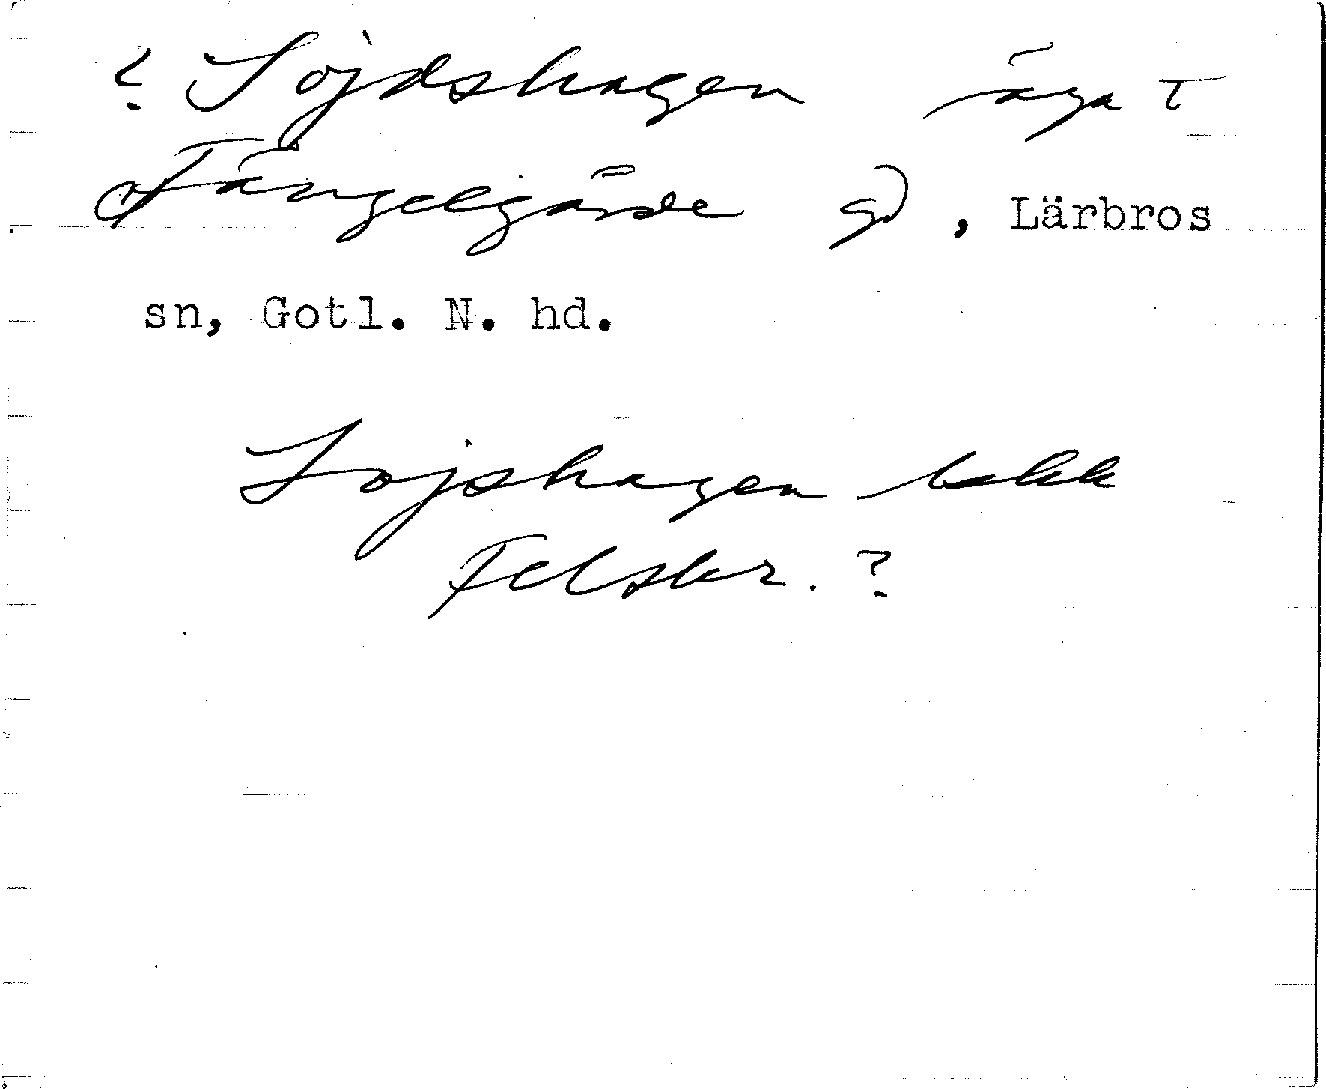 ? Sojdshagen äga t
Tängelgårde gd, Lärbros
sn, Gotl. N. hd.
Sojshagen bekk
Felskr. ?